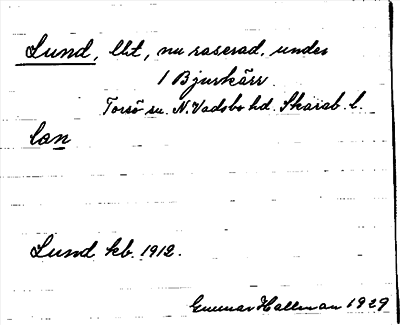 Lund, lht, nu raserad, under
1 Bjurkärr
Torsö sn. N. Vadsbo hd. Skarab. l.
lœn
Lund kb. 1912.
Gunnar Hallman 1929